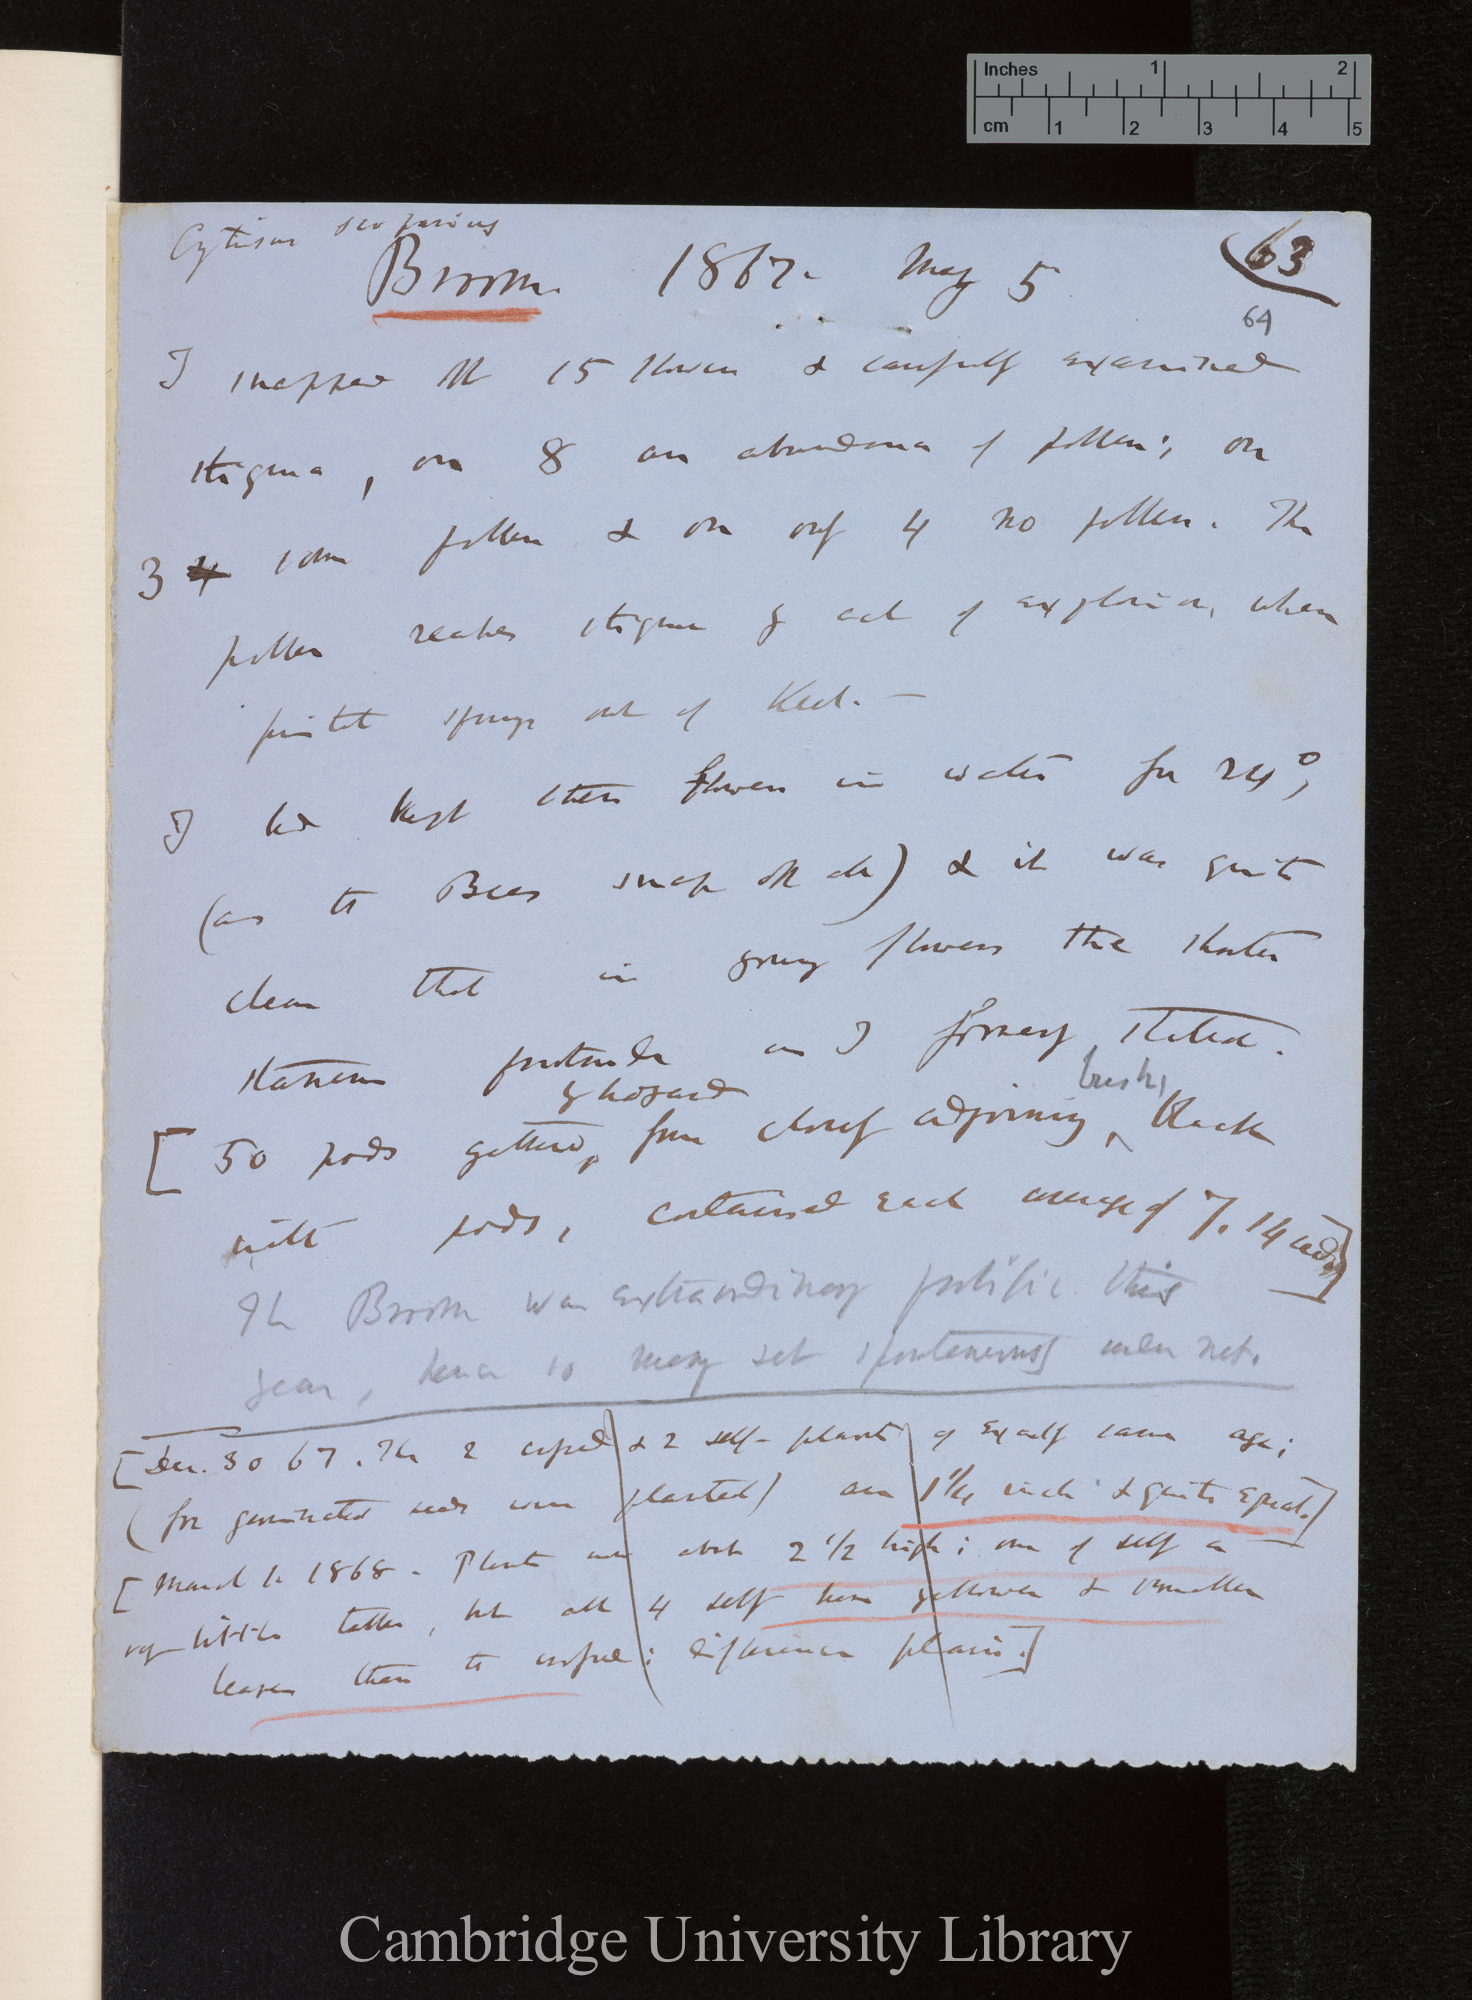 Inches 1 2
cm 1 2 3 4 5
Cytisus scoparius
Broom 1867. May 5
63
64
I snapped off 15 flowers & carefully examined
stigma, on 8 an abundance of pollen; on
3 4 some pollen & on only 4 no pollen. The
pollen reaches stigma by act of explosion, when
pistil springs out of Keel. —
I had kept these flowers in water for 24°,
(as the Bees snap off all) & it was quite
clear that in young flowers the shorter
stamens protrude as I formerly stated.
by hazard bushes
[50 pods gathered, from closely adjoining black
with pods, contained each average of 7.14 seeds]
The Broom was extraordinary prolific this
year, hence so many set spontaneously under net.
[Dec. 30 67. The 2 crossed & 2 self-plants of exactly same age;
(for germinated seeds were planted) are 1 1/4 inch & quite equal.]
[March 1868. Plants are about 2 1/2 high; one of self a
very little taller, but all 4 self have yellower & smaller
leaves than the crossed; difference plain.]
Cambridge University Library